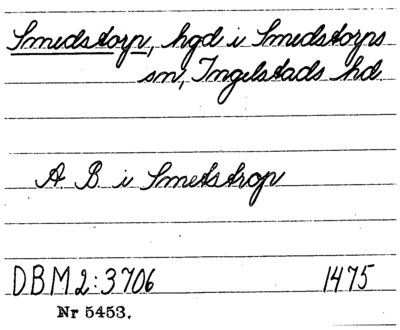 Smedstorp, hgd i Smedstorps
sn, Ingelstads hd.
A. B. i Smetstrop
DBM 2:3706 1475
Nr 5453.